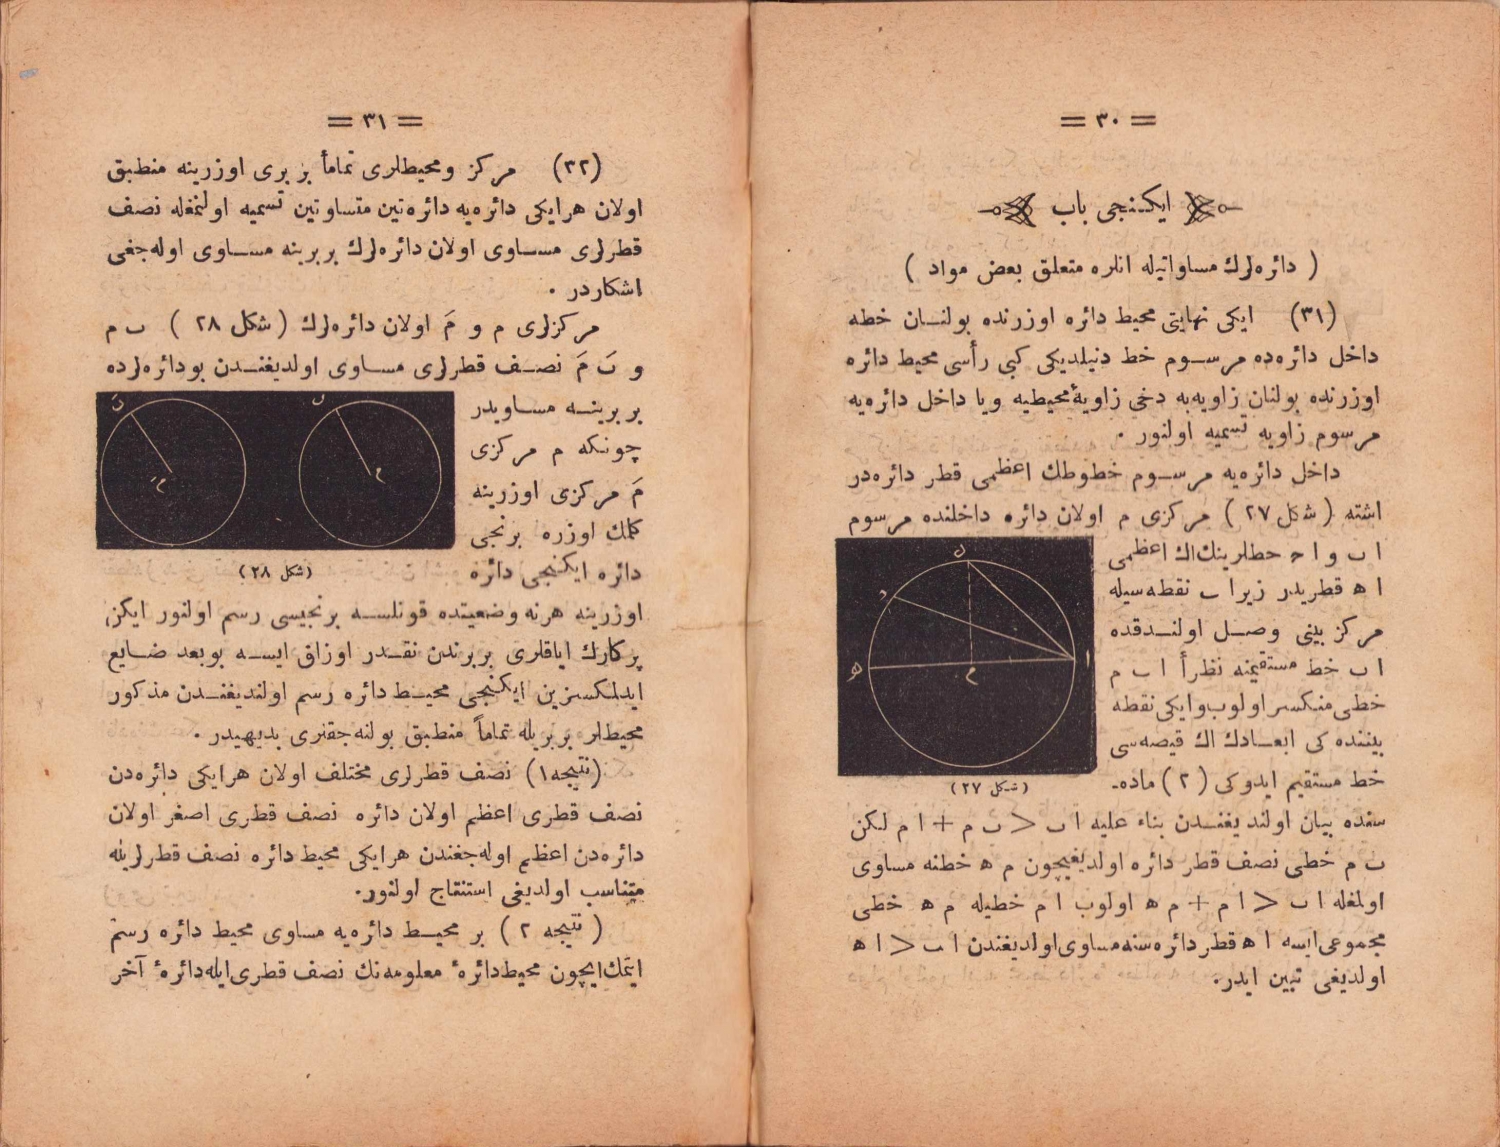 = ٣٠ =
ایکنجی باب
( دائره‌لرك مساواتیله انلره متعلق بعض مواد )
(٣١) ایکی نهایتی محیط دائره اوزرنده بولنـان خطه
داخل دائره‌ده مرسـوم خط دنیلدیکی کبی رأسی محیط دائره
اوزرنده بولنان زاویه‌یه دخی زاویهٔ محیطیه ویا داخل دائره‌یه
مرسوم زاویه تسمیه اولنور .
داخل دائره‌یه مرسـوم خطوطك اعظمی قطر دائره‌در
اشته ( شکل ٢٧ ) مرکزی م اولان دائره داخلنده مرسوم
ا ب و ا ح خطلرینك اك اعظمی
ا ه قطریدر زیرا ب نقطه‌سیله
مرکز بینی وصـل اولنـدقده
ا ب خط مستقیمنه نظراً ا ب م
خطی منکسر اولوب و ایکی نقطه
بیننده کی ابعـادك اك قیصه‌سی
خط مستقیم ایدوکی ( ٢ ) ماده‌-
سنده بیان اولندیغنـدن بناءً علیه ا ب < ب م + ا م لکن
ب م خطی نصف قطر دائره اولدیغیچون م ه خطنه مساوی
اولمغله ا ب < ا م + م ه اولوب ا م خطیله م ه خطی
مجموعی ایسه ا ه قطر دائره‌سنه مساوی اولدیغندن ا ب < ا ه
اولدیغی تبین ایدر.
ب
د
ه
م
ا
( شکل ٢٧ )
= ٣١ =
(٣٢) مرکز و محیطلری تماماً بربری اوزرینه منطبق
اولان هر ایکی دائره‌یه دائره‌تین متساوتین تسمیه اولنمغله نصف
قطرلری مسـاوی اولان دائره‌لرك بربرینه مسـاوی اوله‌جغی
اشکاردر .
مرکزلری م و مَ اولان دائره‌لرك ( شکل ٢٨ ) ب م
و بَ مَ نصـف قطرلری مسـاوی اولدیغنـدن بو دائره‌لرده
بربرینـه مسـاویدر
چونکه م مرکزی
مَ مرکزی اوزرینه
کلمك اوزره برنجی
دائره ایکنجی دائره
اوزرینه هرنه وضعیتده قونلسـه برنجیسی رسم اولنور ایکن
پرکارك ایاقلری بربرندن نقـدر اوزاق ایسـه بوبعد ضـایع
ایدلمکسزین ایکنجی محیـط دائره رسم اولندیغنـدن مذکور
محیطلر بربریله تماماً منطبق بولنه‌جقلری بدیهیدر .
(نتیجه ١) نصف قطرلری مختلف اولان هر ایکی دائره‌دن
نصف قطری اعظم اولان دائره نصف قطری اصغر اولان
دائره‌دن اعظم اوله‌جغندن هر ایکی محیط دائره نصف قطرلریله
متناسب اولدیغی استنتاج اولنور.
( نتیجه ٢ ) بر محیـط دائره‌یه مساوی محیط دائره رسم
ایتمك ایچون محیط دائرهٔ معلومه‌نك نصف قطری ایله دائرهٔ آخر
ب
م
بَ
مَ
( شکل ٢٨ )